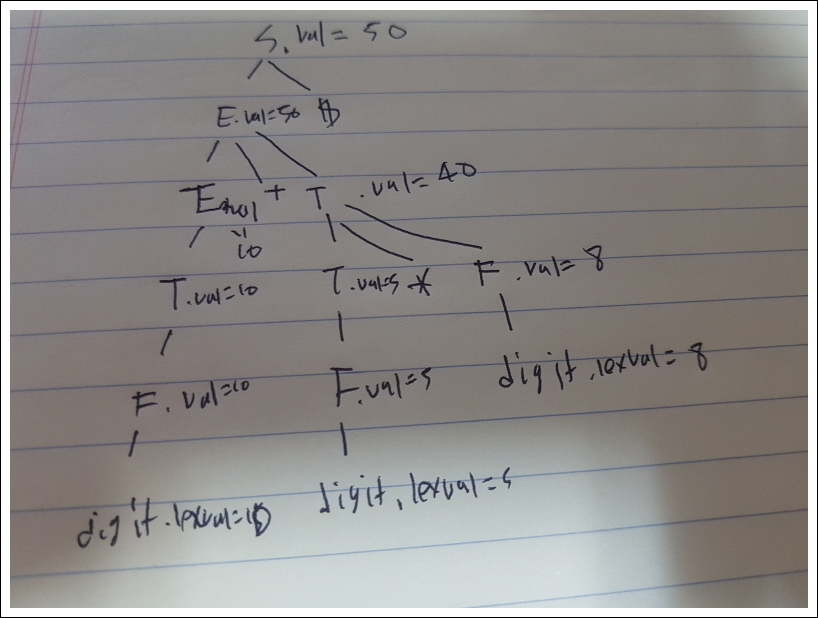 S.val = 50
E.val=50 $
E.val + T .val=40
10
T.val=10 T.val=5 * F .val= 8
F.val=10 F.val=5 digit.lexval= 8
digit.lexval=10 digit.lexval=5